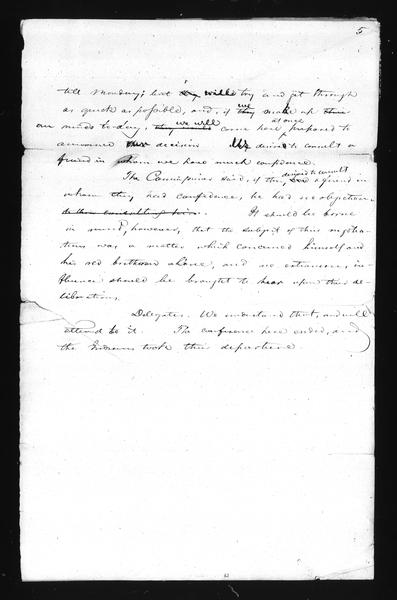 5
till Monday; but will try and get through
as quick as possible, and, if we make up
our minds to day, we will at once come here prepared to
announce our decision We desire to consult a
friend in whom we have much confidence.
The Commissioner said, if they desired to consult a friend in
whom they had confidence, he had no objection
to their consulting him. It should be borne
in mind, however, that the subject of this negotia-
tions was a matter which concerned himself and
his red brethren alone, and no extraneous in-
fluence should be brought to bear upon their de-
liberations.
Delegates. We understand that, and will
attend to it. The conference here ended, and
the Indians took their departure.